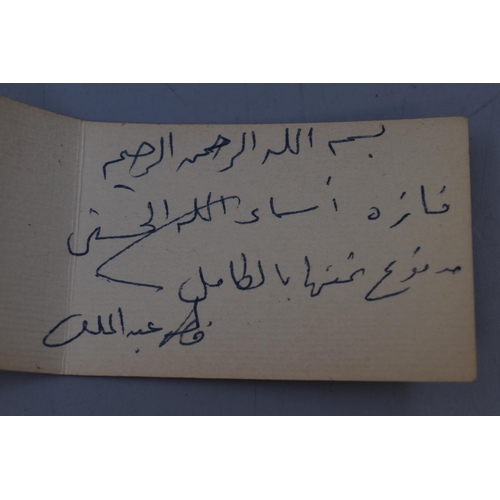 بسم الله الرحمن الرحيم
فازه أسماء الله الحسنى
مدفوع ثمنها بالكامل
عبد الملك